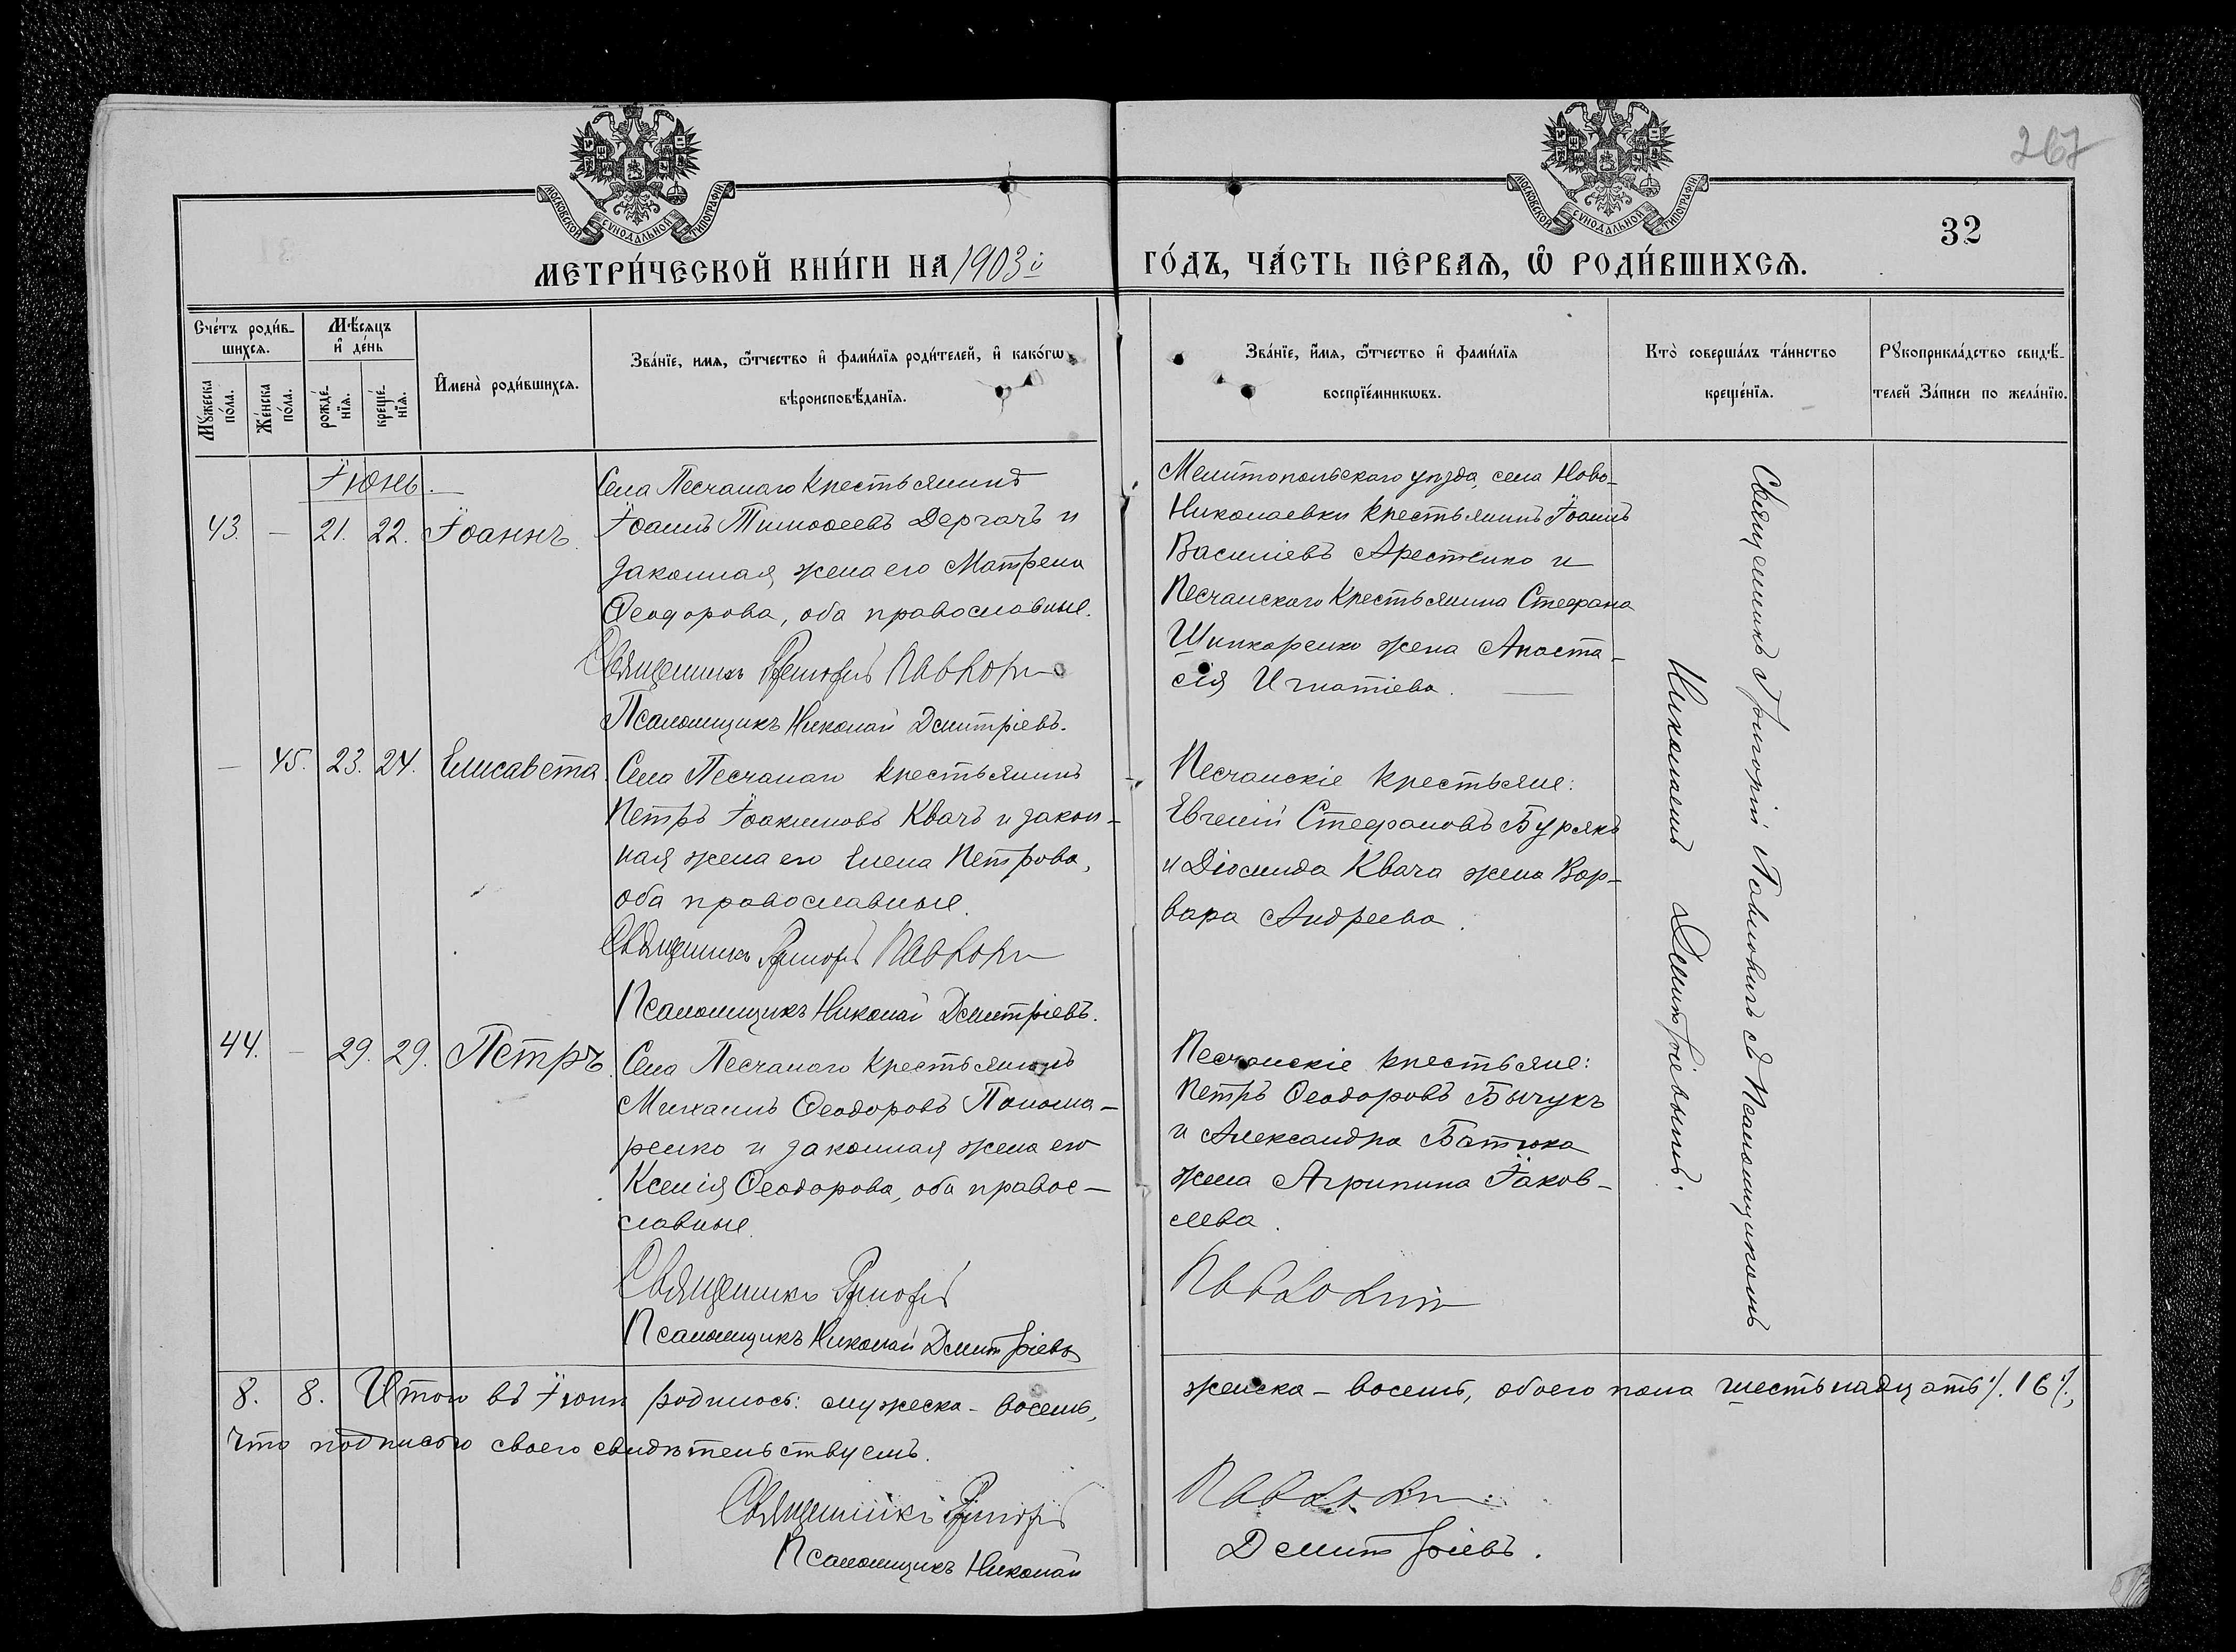 267
32
МОСКОВСКОЙ СУНОДАЛЬНОЙ ТИПОГРАФІИ
МОСКОВСКОЙ СУНОДАЛЬНОЙ ТИПОГРАФІИ
МЕТРИ́ЧЕСКОЙ КНИ́ГИ НА 1903й
ГО́ДЪ, ЧА́СТЬ ПЕ́РВАѦ, Ѡ҆ РОДИ́ВШИХСѦ.
Сче́тъ роди́в-
шихсѧ.
Мꙋ́жеска по́ла.
Же́нска по́ла.
Мѣ́сѧцъ
и҆ де́нь
рожде́-
нїѧ.
креще́-
нїѧ.
И҆мена̀ роди́вшихсѧ.
Зва́нїе, имѧ, ѻ҆́тчество и҆ фами́лїѧ роди́телей, и҆ како́гѡ
вѣроисповѣ́данїѧ.
Зва́нїе, и҆́мѧ, ѻ҆́тчество и҆ фами́лїѧ
воспрїе́мникѡвъ.
Кто̀ соверша́лъ та́инство
креще́нїѧ.
Рꙋкоприкла́дство свидѣ́-
телей За́писи по жела́нїю.
Іюнь.
43. — 21. 22. Іоаннъ.
Села Песчанаго крестьянинъ
Іоаннъ Тимоѳеевъ Дергачъ и
законная жена его Матрена
Ѳеодорова, оба православные.
Священникъ Григорій Павловичъ
Псаломщикъ Николай Дмитріевъ.
Мелитопольскаго уѣзда, села Ново-
Николаевки крестьянинъ Іоаннъ
Василіевъ Арестенко и
Песчанскаго крестьянина Стефана
Шинкаренко жена Анаста-
сія Игнатіева.
— 45. 23. 24. Елисавета.
Села Песчанаго крестьянинъ
Петръ Іоакимовъ Квачъ и закон-
ная жена его Елена Петрова,
оба православные.
Священникъ Григорій Павловичъ
Псаломщикъ Николай Дмитріевъ.
Песчанскіе крестьяне:
Евгеній Стефановъ Бурякъ
и Діомида Квача жена Вар-
вара Андреева.
44. — 29. 29. Петръ.
Села Песчанаго крестьянинъ
Михаилъ Ѳеодоровъ Понома-
ренко и законная жена его
Ксенія Ѳеодорова, оба правос-
славные.
Священникъ Григорій
Псаломщикъ Николай Дмитріевъ
Песчанскіе крестьяне:
Петръ Ѳеодоровъ Бычукъ
и Александра Батюка
жена Агрипина Іаков-
лева.
Павловичъ
Священникъ Григорій Павловичъ съ Псаломщикомъ
Николаемъ Дмитріевымъ.
8. 8. Итого въ Іюнѣ родилось: мужеска - восемь,
женска - восемь, обоего пола шестьнадцать ./. 16 ./.,
что подписью своего свидѣтельствуемъ.
Священникъ Григорій
Павловичъ
Псаломщикъ Николай
Дмитріевъ.